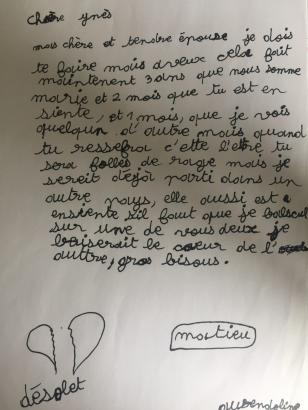 chère ynès
mais chère et tendre épouse je dois
te faire mais aveux cela fait
maintenent 3 ans que nous somme
marie et 2 mois que tu est en
siente, et 1 mois, que je vois
quelqun d'autre mais quand
tu ressefra c'ette l'etre tu
sera folles de rage mais je
sereit dejà parti dans un
autre pays, elle aussi est a
ensiente s'il faut que je
sur une de vous deux je
baiserait le cœur de l'
auttre, gros bisous.
mastieu
désolet
guendoline